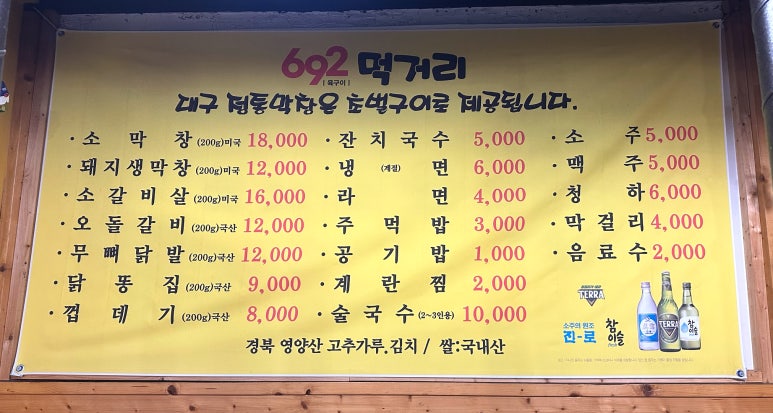 692 먹거리
[육구이]
대구 전통막창은 초벌구이로 제공됩니다.
· 소 막 창 (200g)미국 18,000
· 돼지생막창 (200g)미국 12,000
· 소 갈 비 살 (200g)미국 16,000
· 오 돌 갈 비 (200g)국산 12,000
· 무 뼈 닭 발 (200g)국산 12,000
· 닭 똥 집 (200g)국산 9,000
· 껍 데 기 (200g)국산 8,000
· 잔 치 국 수 5,000
· 냉 (계절) 면 6,000
· 라 면 4,000
· 주 먹 밥 3,000
· 공 기 밥 1,000
· 계 란 찜 2,000
· 술 국 수 (2~3인용) 10,000
· 소 주 5,000
· 맥 주 5,000
· 청 하 6,000
· 막 걸 리 4,000
· 음 료 수 2,000
TERRA
소주의 원조
진-로
참이슬
fresh
TERRA
참이슬
경북 영양산 고추가루.김치 / 쌀:국내산